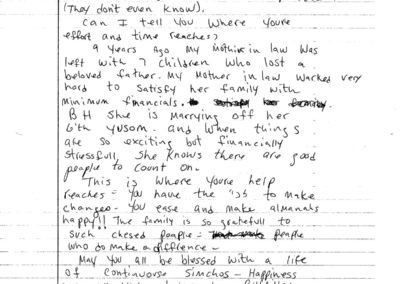 (They don't even know).
Can I tell you where youre
effort and time reaches?
9 years ago my Mother in law was
left with 7 children who lost a
beloved father. My Mother in law worked very
hard to satisfy her family with
minimum financials.
BH she is marrying off her
6'th yusom. and when things
are so exciting but financially
stressfull, she knows there are good
people to count on.
This is where youre help
reaches - You have the to make
changes - You ease and make almanahs
happy!! The family is so gratefull to
such chesed people - people
who do make a difference -
May you all be blessed with a life
of continuouse simchos - Happiness